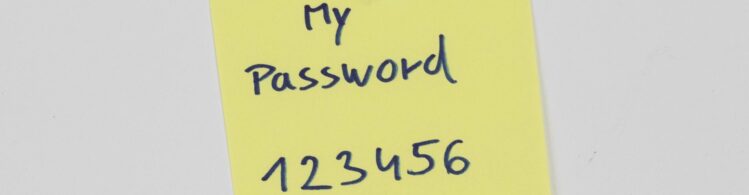 My
Password
123456